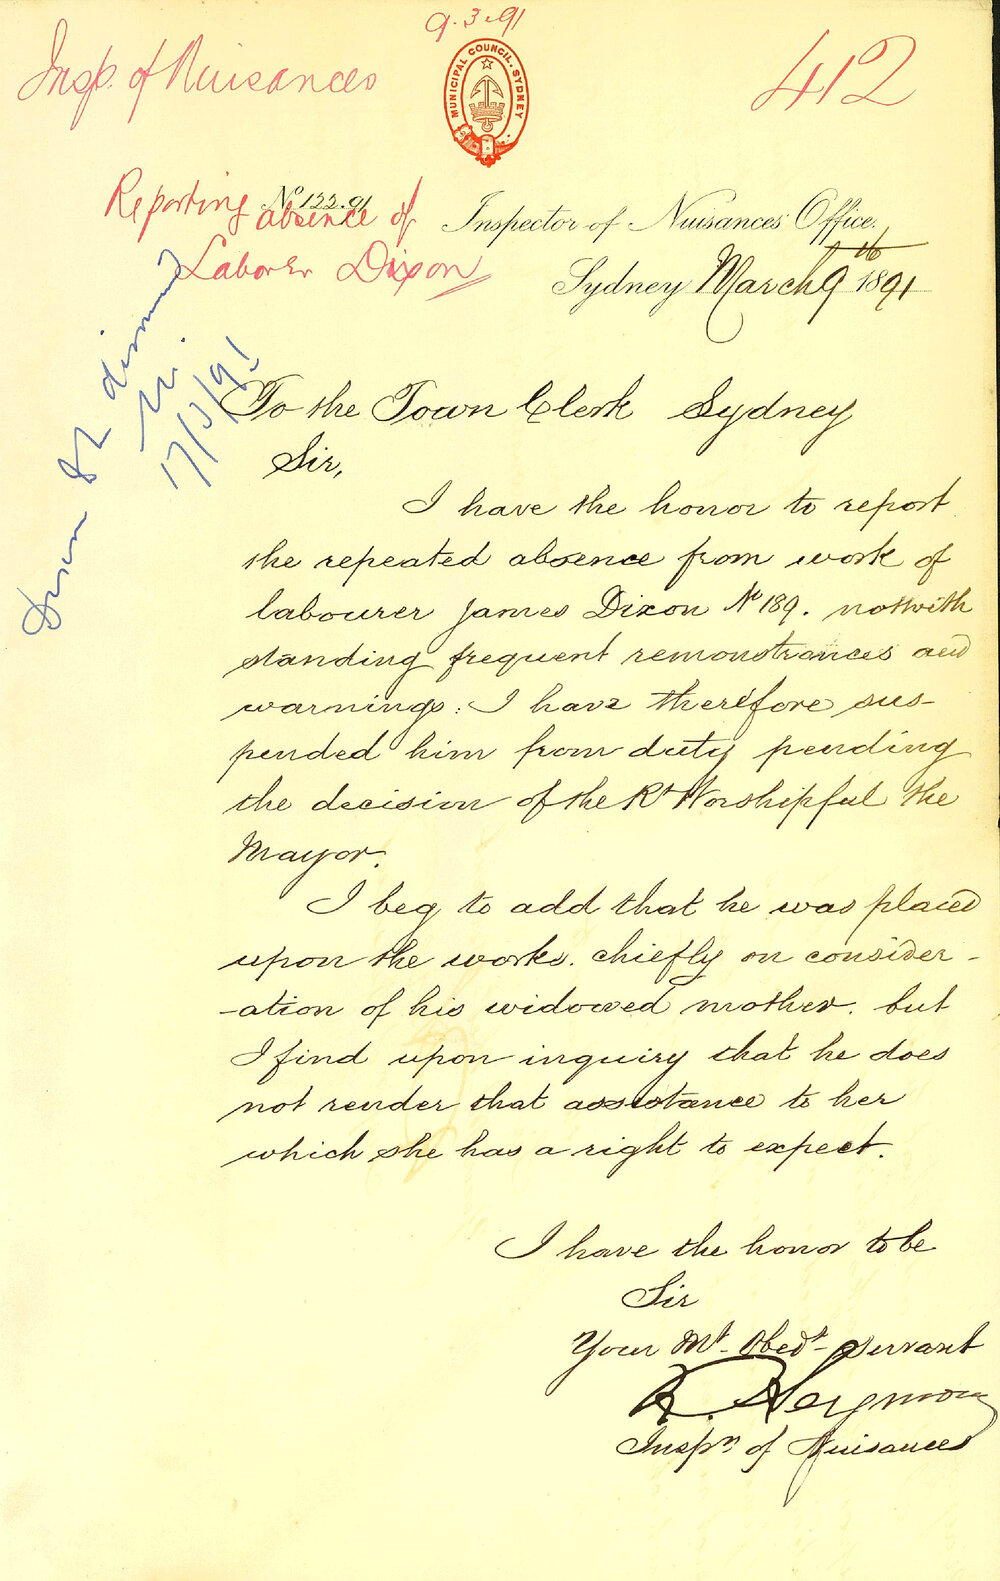 9.3.91
Insp. of Nuisances
412
MUNICIPAL COUNCIL. SYDNEY
Reporting absence of
Laborer Dixon
No 122.91
Inspector of Nuisances Office.
Sydney March 9th 1891
17/3/91
To the Town Clerk Sydney
Sir,
I have the honor to report
the repeated absence from work of
labourer James Dixon No 189. notwith
standing frequent remonstrances and
warnings: I have therefore sus-
pended him from duty pending
the decision of the Rt Worshipful the
Mayor.
I beg to add that he was placed
upon the works. chiefly on consider-
-ation of his widowed mother. but
I find upon inquiry that he does
not render that assistance to her
which she has a right to expect.
I have the honor to be
Sir
Your Mt. Obedt. Servant
R. Seymour
Inspr. of Nuisances